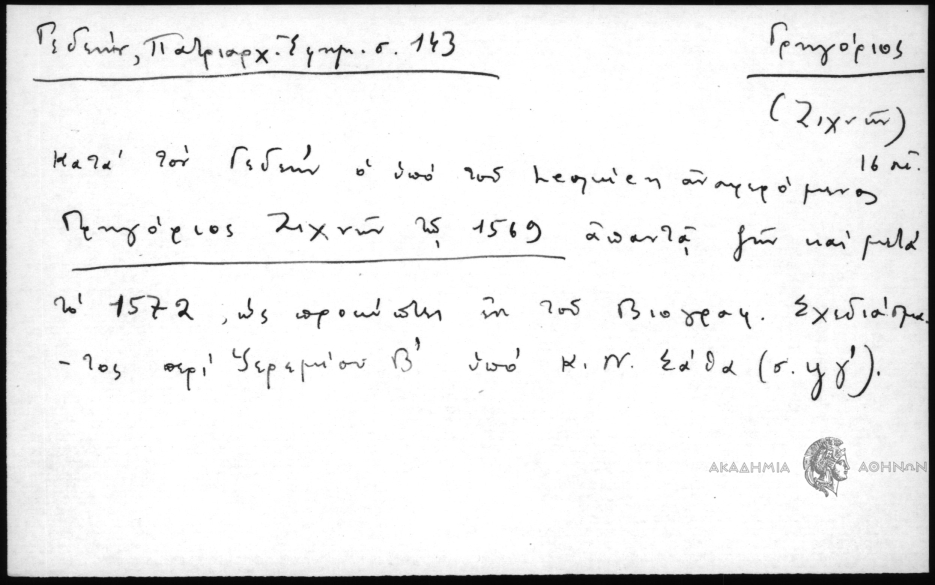 Γεδεών, Πατριαρχ. Ἐφημ. σ. 143
Γρηγόριος
(Ζιχνῶν)
16 αἰ.
Κατά τον Γεδεών ὁ ὑπό τοῦ Lequien ἀναφερόμενος
Γρηγόριος Ζιχνῶν τῷ 1569 ἀπαντᾷ ζῶν καί μετά
τό 1572, ὡς προκύπτει ἐκ τοῦ Βιογραφ. Σχεδιάσμα-
-τος περί Ἱερεμίου Β' ὑπό Κ. Ν. Σάθα (σ. ϟγ').
ΑΚΑΔΗΜΙΑ ΑΘΗΝΩΝ